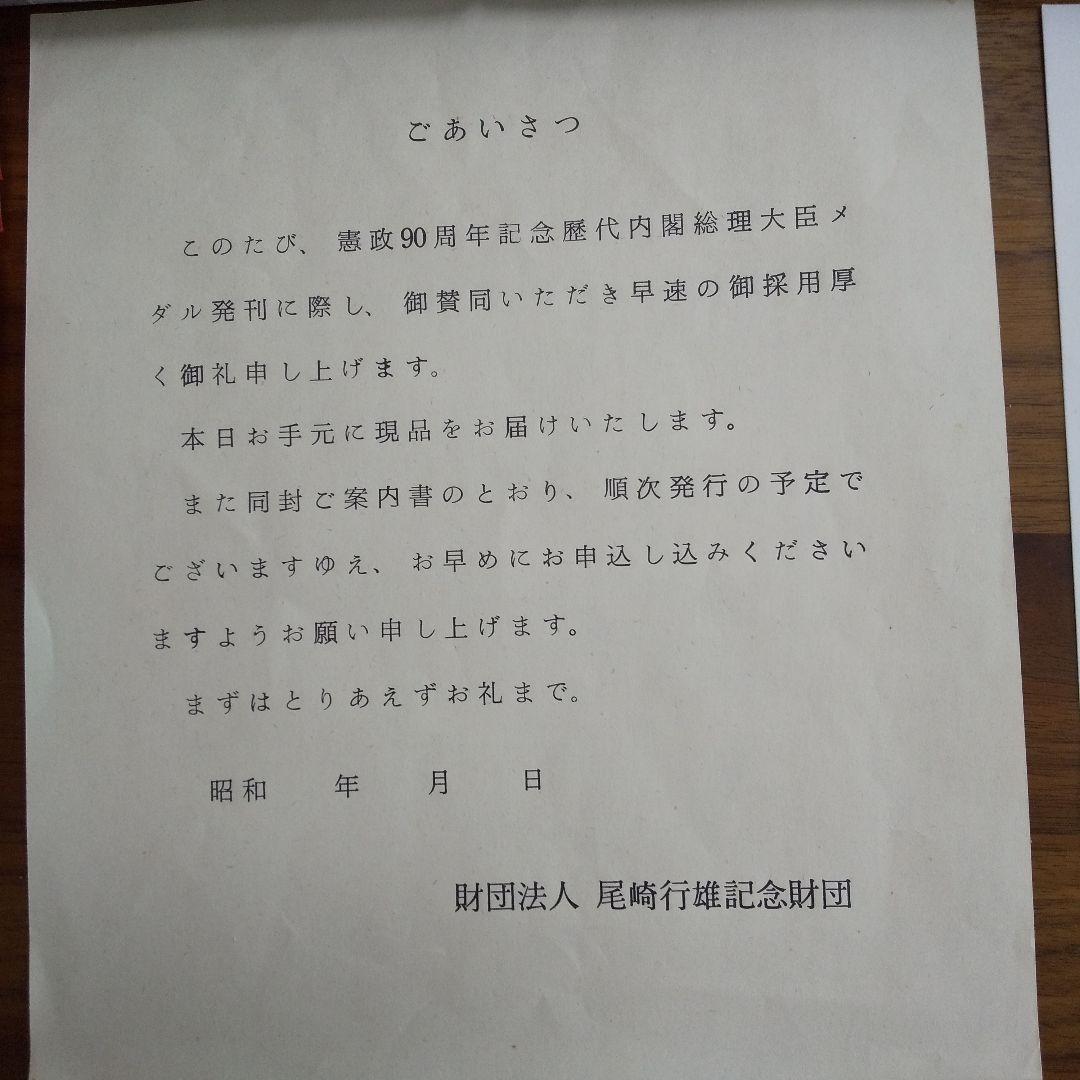 ごあいさつ
このたび、憲政90周年記念歴代内閣総理大臣メ
ダル発刊に際し、御賛同いただき早速の御採用厚
く御礼申し上げます。
本日お手元に現品をお届けいたします。
また同封ご案内書のとおり、順次発行の予定で
ございますゆえ、お早めにお申込し込みください
ますようお願い申し上げます。
まずはとりあえずお礼まで。
昭和　　年　　月　　日
財団法人 尾崎行雄記念財団